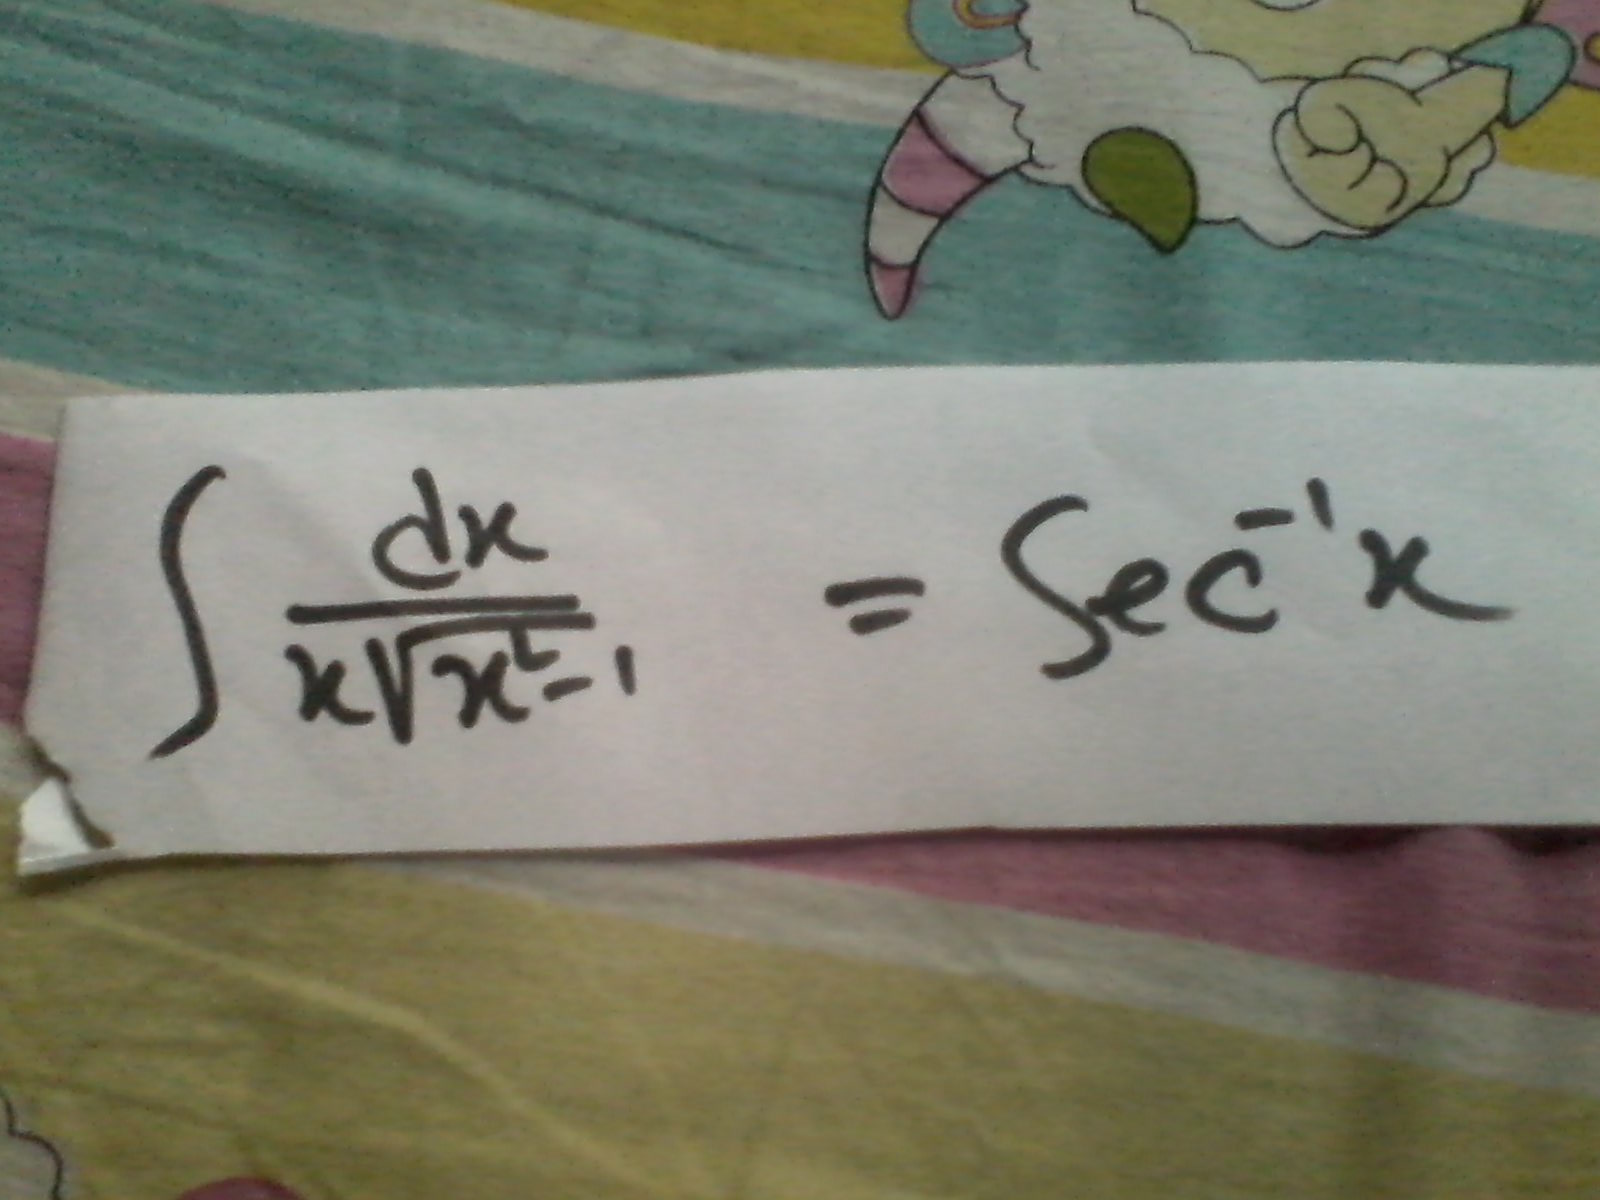 ∫ dx / x√x²-1 = Sec⁻¹x